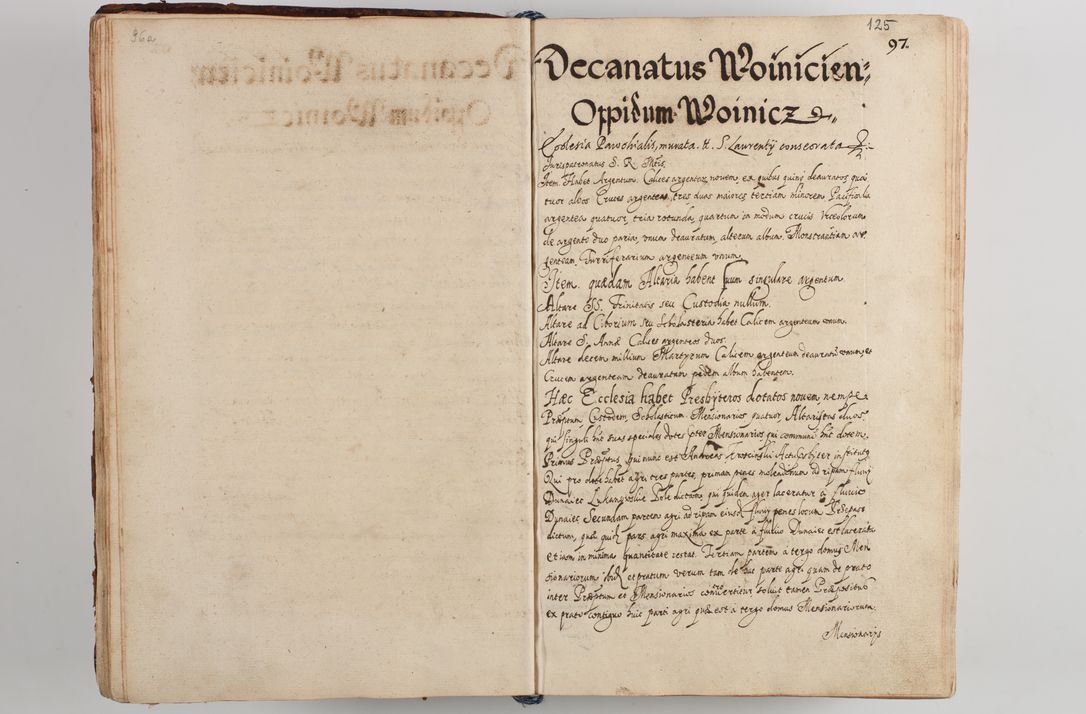 96a
125
97.
Decanatus Woinicien:
Oppidum Woinicz
Ecclesia Parochialis, murata. tt. S. Laurentij consecrata
Jurispatronatus S. R. Mtis.
Item. Habet Argentum. Calices argenteos novem, ex quibus quinq deauratos, qua
tuor albos Cruces argenteas, tres duas maiores tertiam minorem Pacificalia
argentea quatuor, tria rotunda, quartum in modum crucis Urceolorum
de argento duo paria, unum deauratum, alterum album. Monstrantiam ar
genteam. Turriferarium argenteum unum.
Item quædam Altaria habent suum singulare argentum
Altare SS. Trinitatis seu Custodia nullum.
Altare ad Ciborium seu Scholasteria habet Calicem argenteum unum.
Altare S. Annæ Calices argenteos duos.
Altare decem millium Martyrum Calicem argenteum deauratū unum, et
Crucem argenteam deauratam pedem album habentem.
Hæc Ecclesia habet Presbyteros dotatos novem, nempe
Præptum, Custodem, Scholasticum Mensionarios quatuor, Altaristas duos
qui singuli hñt suas speciales dotes pter Mensionarios qui communē hñt dotem.
Primus Præpitus, qui nunc est Andreas institutq
Qui pro dote habet agri tres partes, primam penes molendinum ad ripam fluvij
Dunaiec Pole dictam, qui quidem ager laceratur à fluvio
Dunaiec Secundam partem agri ad ripam eiusd fluvij penes locum
dictum, quæ quid pars agri maxima ex parte à fluvio Dunaiec est lacerata
et iam in minima quantitate restat. Tertiam partem à tergo domus Men
sionariorum ibid et pratum verum tam de hac parte agri quam de prato
inter Præptum et Mensionarios convertitur, solvit tamen Præpositus
ex prato contiguo huic parti agri quæ est à tergo domus Mensionariorum.
Mensionarijs